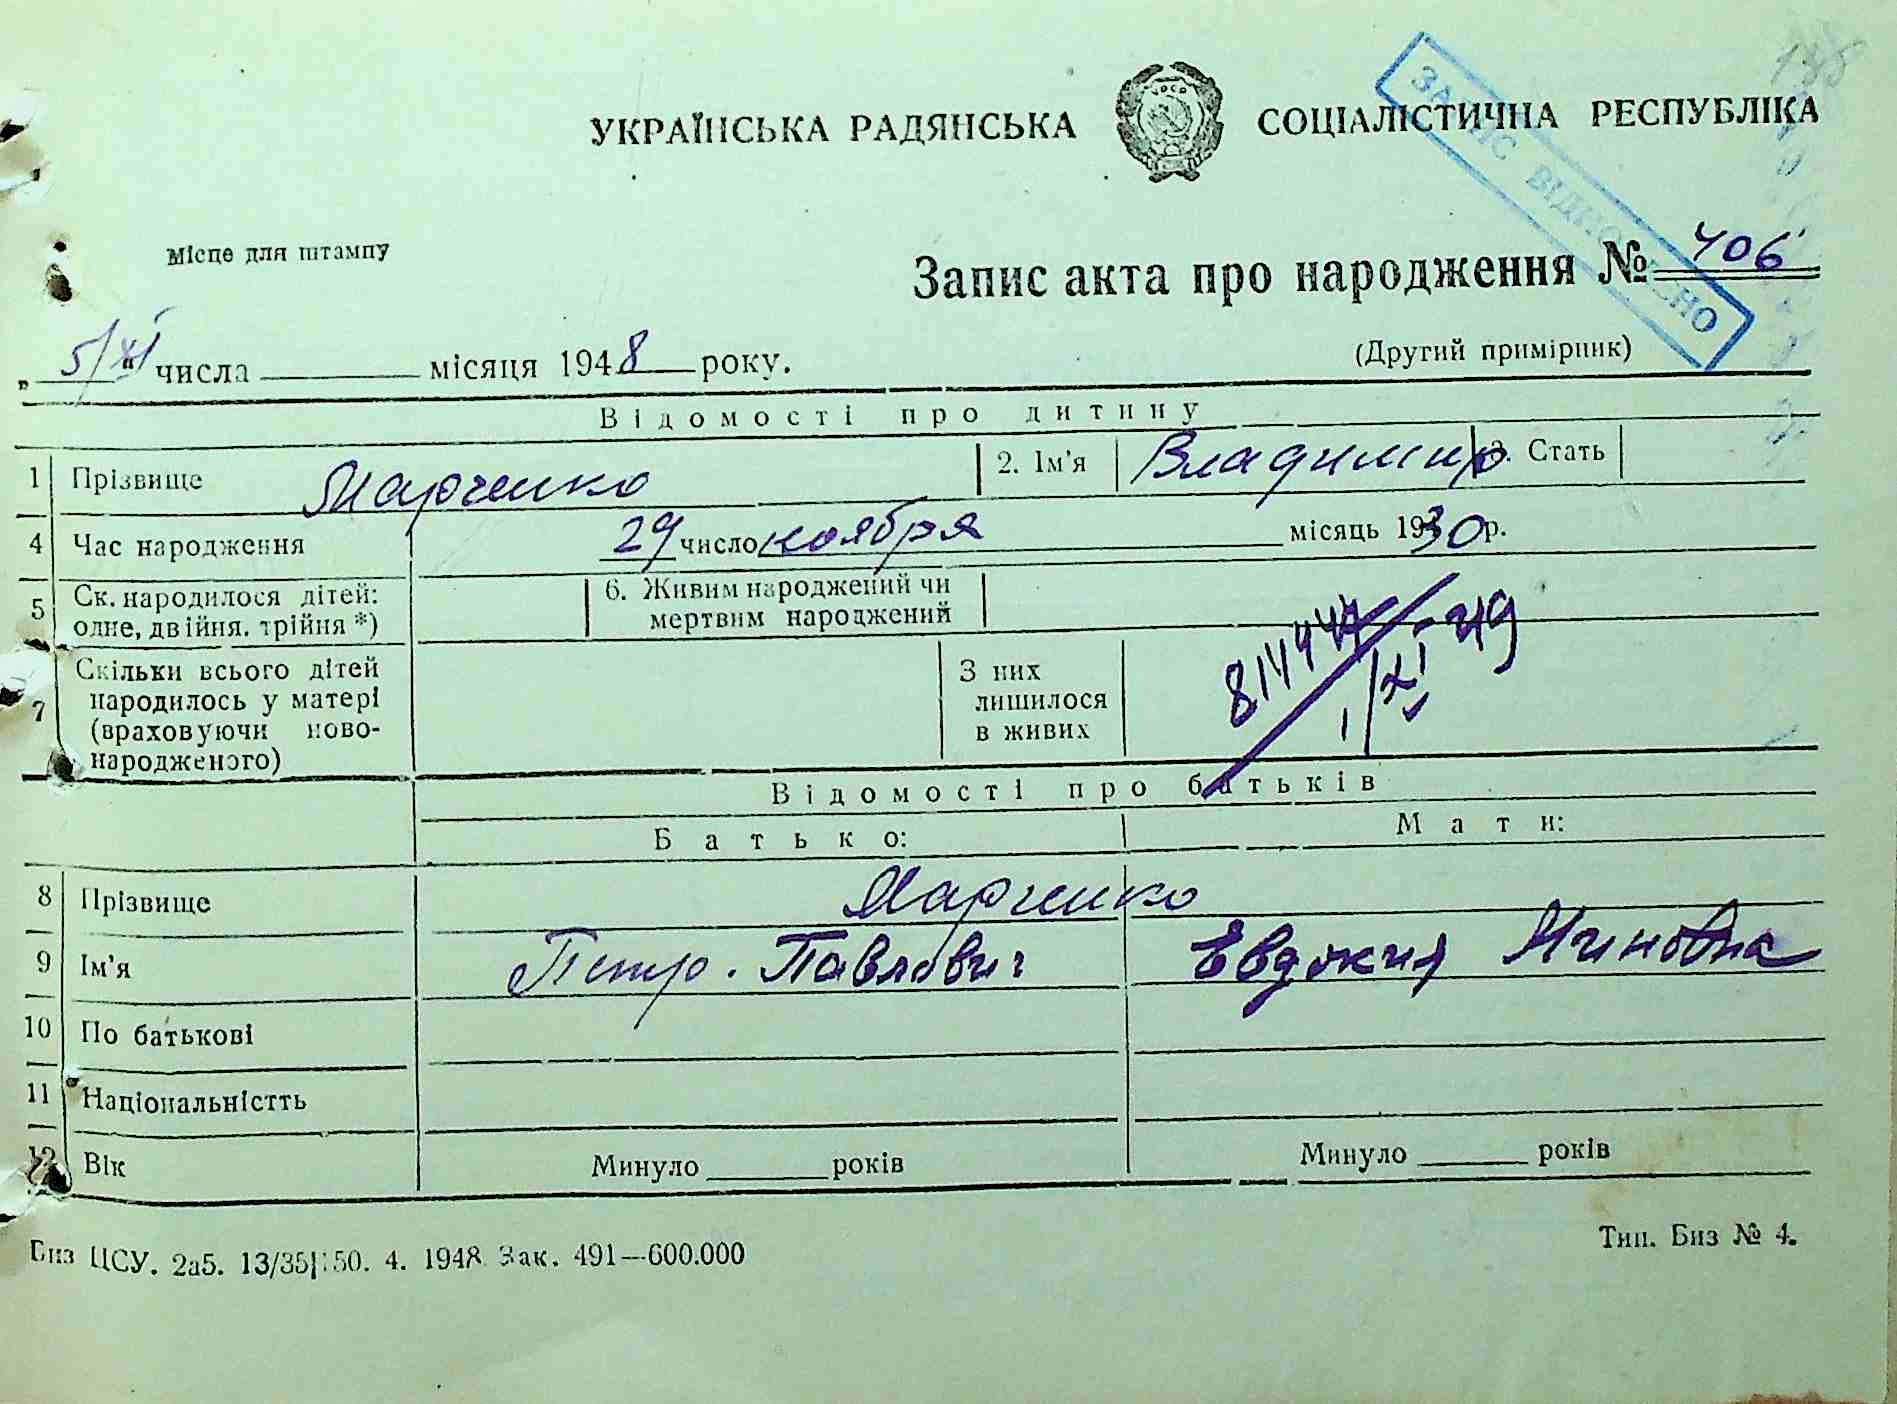 188
УКРАЇНСЬКА РАДЯНСЬКА СОЦІАЛІСТИЧНА РЕСПУБЛІКА
УРСР
ЗАПИС ВІДНОВЛЕНО
Місце для штампу
Запис акта про народження № 406
„ 5/XI " числа місяця 1948 року.
(Другий примірник)
Відомості про дитину
1 Прізвище Марченко 2. Ім'я Владимир 3. Стать
4 Час народження 29 число ноября місяць 1930 р.
5 Ск. народилося дітей: одне, двійня, трійня *) 6. Живим народжений чи мертвим народжений
7 Скільки всього дітей народилось у матері (враховуючи новонародженого) З них лишилося в живих
1/XI-49
Відомості про батьків
Батько: Мати:
8 Прізвище Марченко
9 Ім'я Петр. Павлович Евдокия Миновна
10 По батькові
11 Національністть
12 Вік Минуло років Минуло років
Биз ЦСУ. 2а5. 13/35 50. 4. 1948 Зак. 491—600.000
Тип. Биз № 4.